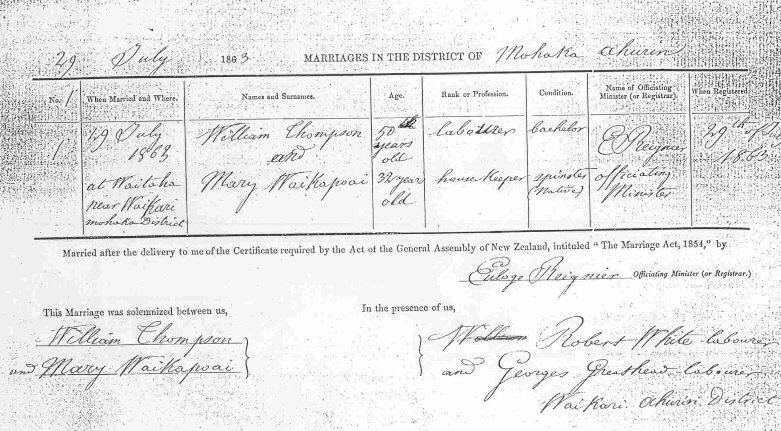 29 July 1863 MARRIAGES IN THE DISTRICT OF Mohaka Ahuriri
No. 1 When Married and Where. Names and Surnames. Age. Rank or Profession. Condition. Name of Officiating Minister (or Registrar). When Registered
1 29 July 1863 William Thompson 50 labourer bachelor E Reignier 29th of
and years old 1863
at Waitaha Mary Waikapoai 32 year house Keeper spinster officiating
near Waikari old (Native) Minister
mohaka District
Married after the delivery to me of the Certificate required by the Act of the General Assembly of New Zealand, intituled "The Marriage Act, 1854," by
Euloge Reignier Officiating Minister (or Registrar.)
This Marriage was solemnized between us,
William Thompson
and Mary Waikapoai
In the presence of us,
Robert White labourer
and Georges Greathead labourer
Waikari Ahuriri District